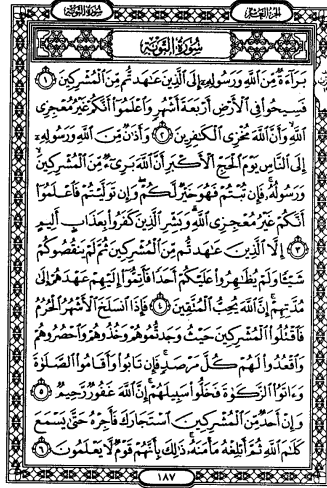 سورة التوبة
الجزء العاشر
سُورَةُ التَّوْبَةِ
بَرَآءَةٌ مِّنَ ٱللَّهِ وَرَسُولِهِۦٓ إِلَى ٱلَّذِينَ عَٰهَدتُّم مِّنَ ٱلْمُشْرِكِينَ ١
فَسِيحُوا۟ فِى ٱلْأَرْضِ أَرْبَعَةَ أَشْهُرٍ وَٱعْلَمُوٓا۟ أَنَّكُمْ غَيْرُ مُعْجِزِى
ٱللَّهِ وَأَنَّ ٱللَّهَ مُخْزِى ٱلْكَٰفِرِينَ ٢ وَأَذَٰنٌ مِّنَ ٱللَّهِ وَرَسُولِهِۦٓ
إِلَى ٱلنَّاسِ يَوْمَ ٱلْحَجِّ ٱلْأَكْبَرِ أَنَّ ٱللَّهَ بَرِىٓءٌ مِّنَ ٱلْمُشْرِكِينَ
وَرَسُولُهُۥ فَإِن تُبْتُمْ فَهُوَ خَيْرٌ لَّكُمْ وَإِن تَوَلَّيْتُمْ فَٱعْلَمُوٓا۟
أَنَّكُمْ غَيْرُ مُعْجِزِى ٱللَّهِ وَبَشِّرِ ٱلَّذِينَ كَفَرُوا۟ بِعَذَابٍ أَلِيمٍ
٣ إِلَّا ٱلَّذِينَ عَٰهَدتُّم مِّنَ ٱلْمُشْرِكِينَ ثُمَّ لَمْ يَنقُصُوكُمْ
شَيْـًٔا وَلَمْ يُظَٰهِرُوا۟ عَلَيْكُمْ أَحَدًا فَأَتِمُّوٓا۟ إِلَيْهِمْ عَهْدَهُمْ إِلَىٰ
مُدَّتِهِمْ إِنَّ ٱللَّهَ يُحِبُّ ٱلْمُتَّقِينَ ٤ فَإِذَا ٱنسَلَخَ ٱلْأَشْهُرُ ٱلْحُرُمُ
فَٱقْتُلُوا۟ ٱلْمُشْرِكِينَ حَيْثُ وَجَدتُّمُوهُمْ وَخُذُوهُمْ وَٱحْصُرُوهُمْ
وَٱقْعُدُوا۟ لَهُمْ كُلَّ مَرْصَدٍ فَإِن تَابُوا۟ وَأَقَامُوا۟ ٱلصَّلَوٰةَ
وَءَاتَوُا۟ ٱلزَّكَوٰةَ فَخَلُّوا۟ سَبِيلَهُمْ إِنَّ ٱللَّهَ غَفُورٌ رَّحِيمٌ ٥
وَإِنْ أَحَدٌ مِّنَ ٱلْمُشْرِكِينَ ٱسْتَجَارَكَ فَأَجِرْهُ حَتَّىٰ يَسْمَعَ
كَلَٰمَ ٱللَّهِ ثُمَّ أَبْلِغْهُ مَأْمَنَهُۥ ذَٰلِكَ بِأَنَّهُمْ قَوْمٌ لَّا يَعْلَمُونَ ٦
١٨٧